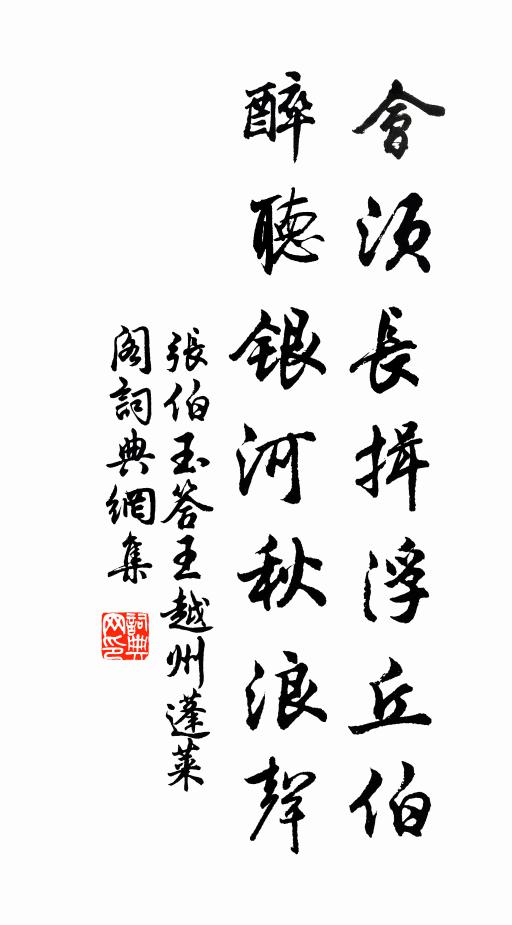 會須長揖浮丘伯
醉聽銀河秋浪聲
張伯玉答王越州蓬萊
閣詞典網集
詞典
网印